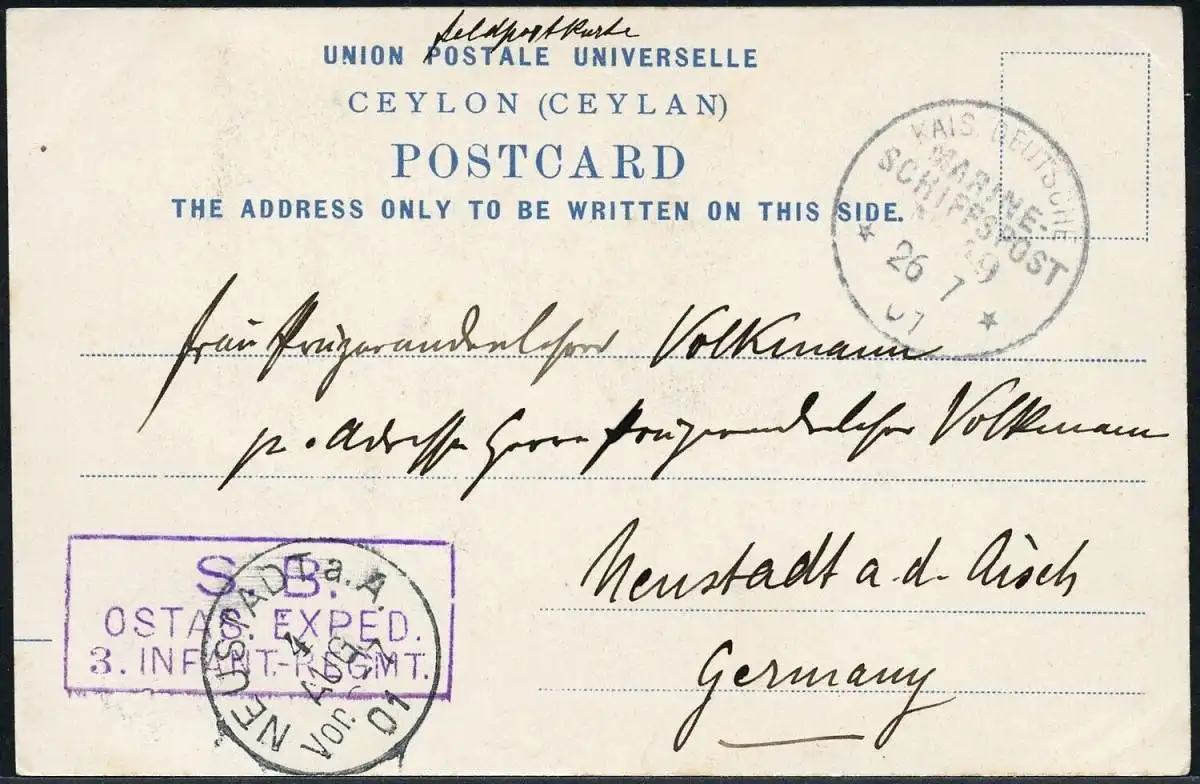 Feldpostkarte
UNION POSTALE UNIVERSELLE
CEYLON (CEYLAN)
POSTCARD
THE ADDRESS ONLY TO BE WRITTEN ON THIS SIDE.
KAIS. DEUTSCHE
MARINE-
SCHIFFSPOST
26 7
01
Frau Volkmann
p. Adresse Herrn Volkmann
Neustadt a. d. Aisch
Germany
S. B.
OSTAS. EXPED.
3. INFANT.-REGMT.
NEUSTADT a. A.
4
AUG
Vor.
01